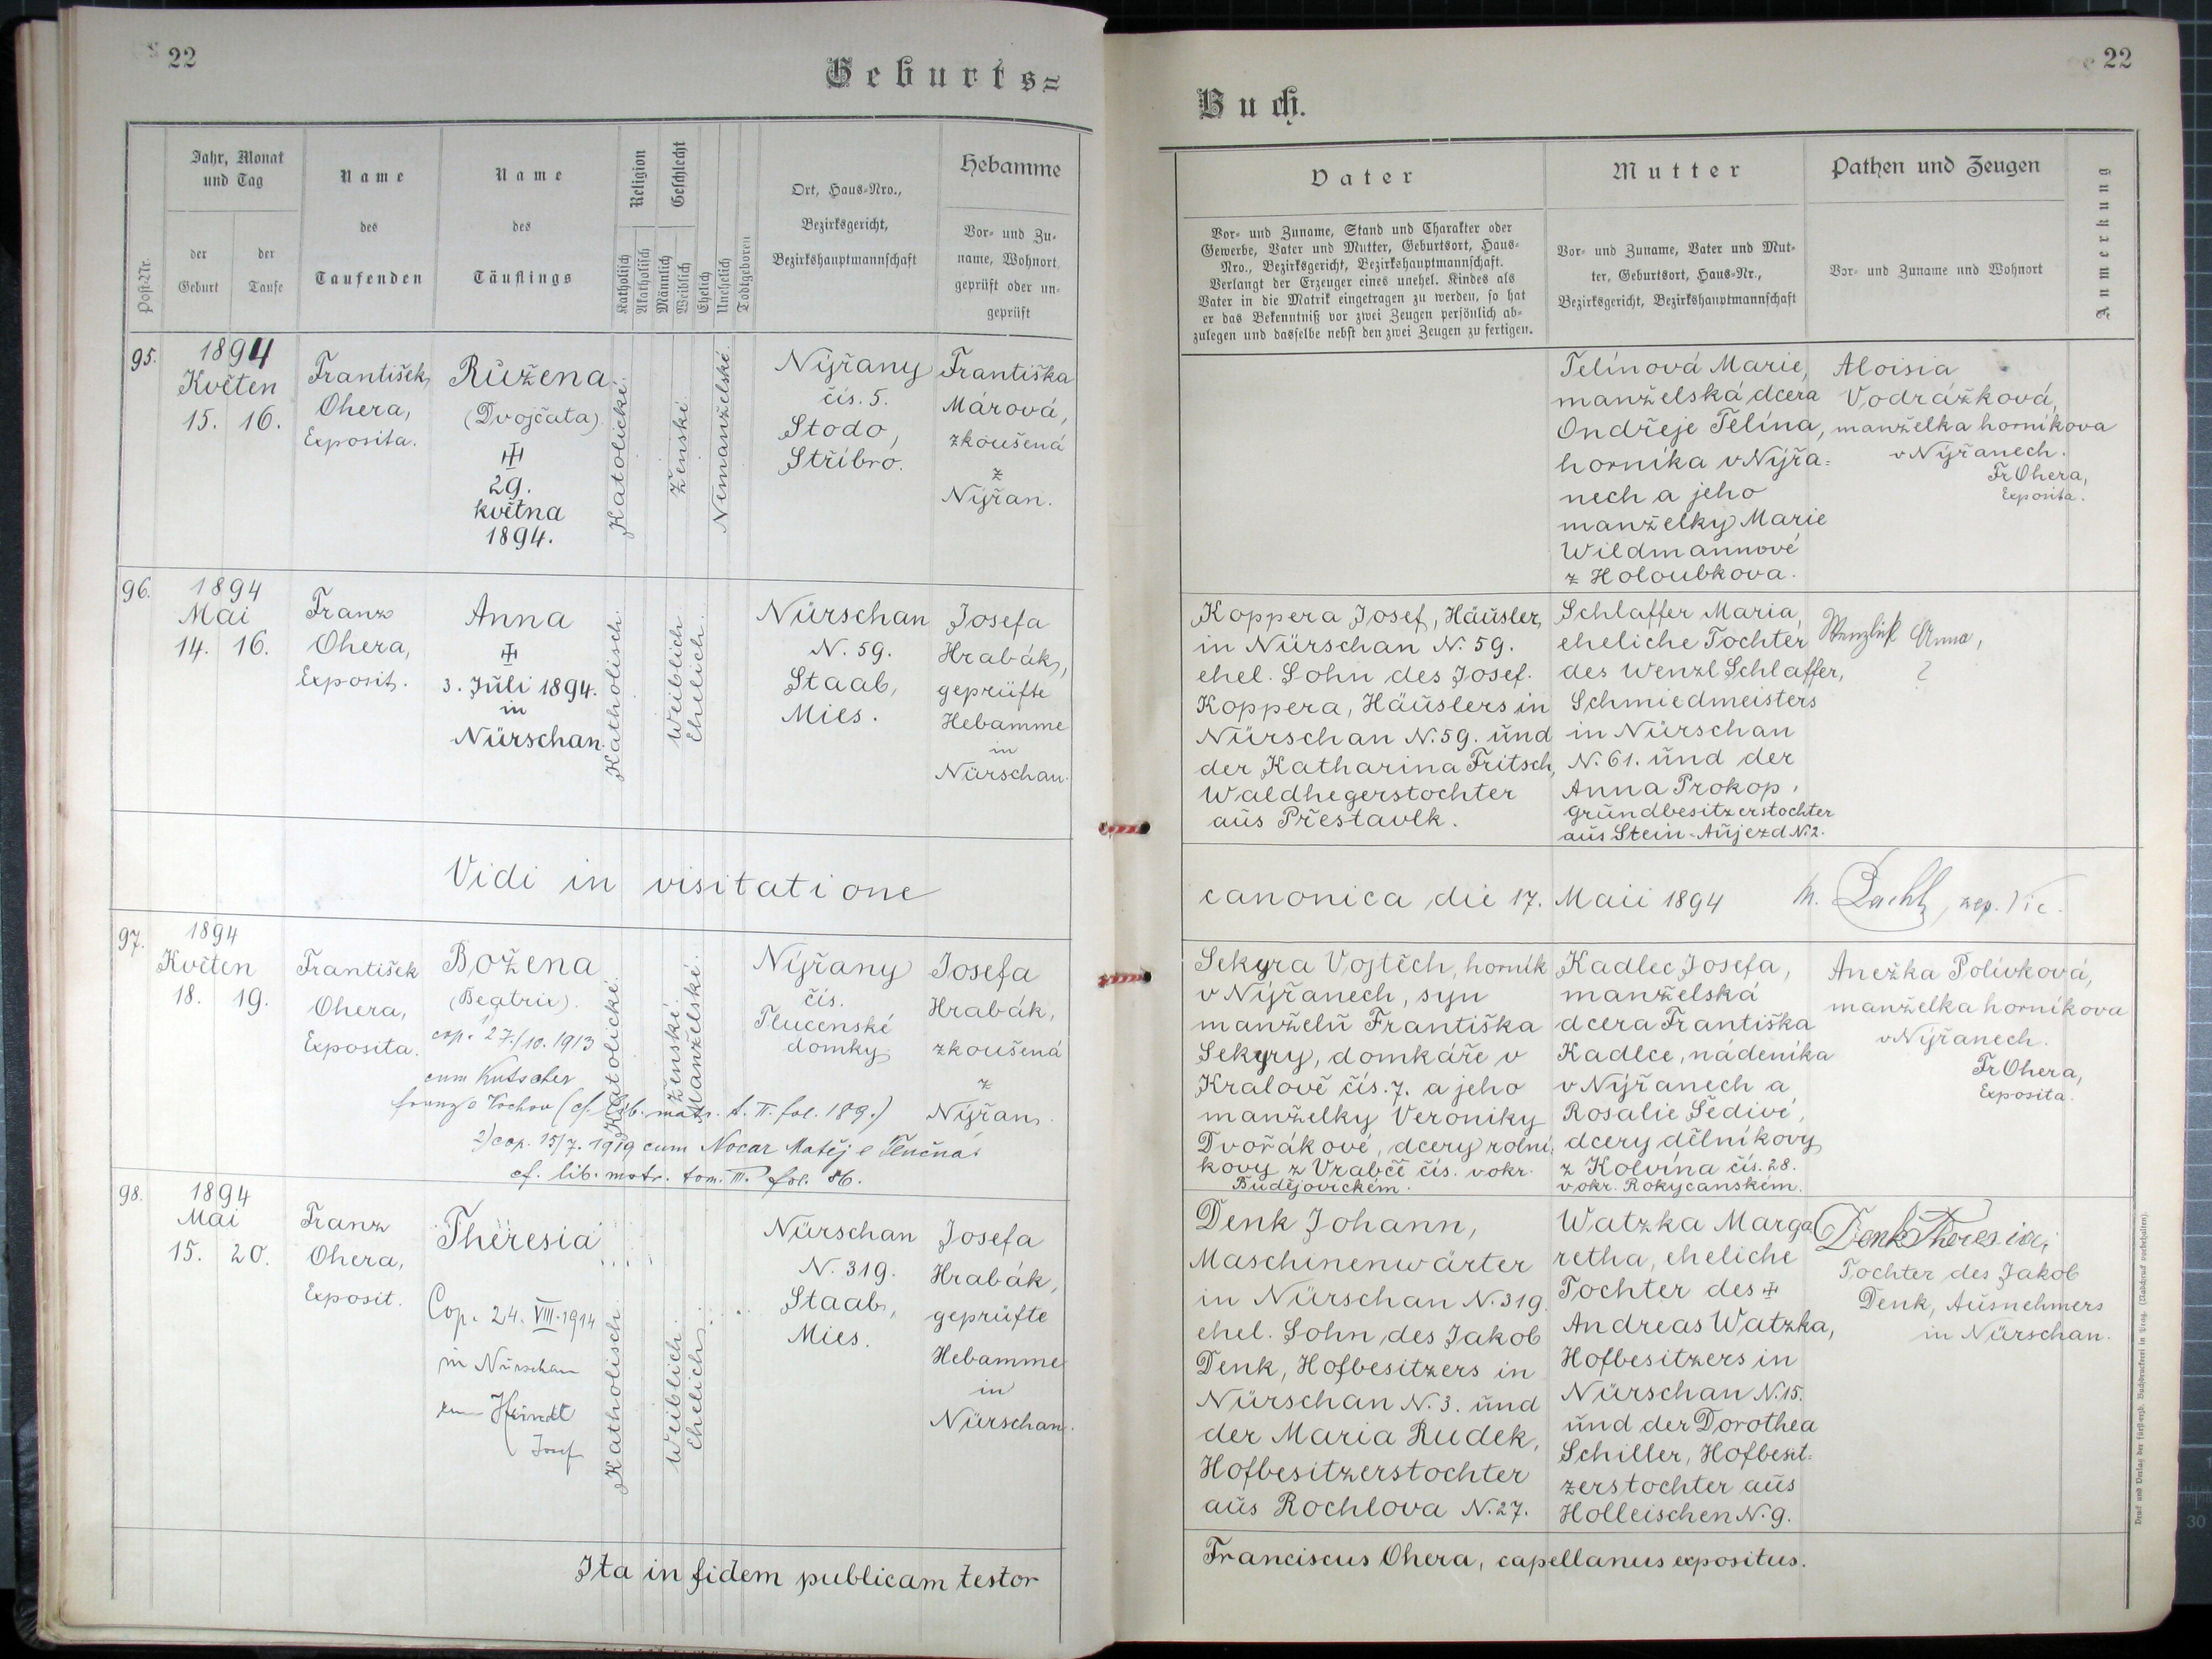 22
Geburts=
Jahr, Monat
und Tag
Name
Name
Religion
Geschlecht
Ort, Haus-Nro.,
Hebamme
Post-Nr.
der
Geburt
der
Taufe
des
Taufenden
des
Täuflings
Katholisch
Akatholisch
Männlich
Weiblich
Ehelich
Unehelich
Todtgeboren
Bezirksgericht,
Bezirkshauptmannschaft
Vor- und Zu-
name, Wohnort
geprüft oder un-
geprüft
95.
1894
Květen
15. 16.
František
Ohera,
Exposita.
Růžena
(Dvojčata)
29.
května
1894.
Katolické.
Ženské
Nemanželské.
Nýřany
čís. 5.
Stodo,
Stříbro.
Františka
Márová,
zkoušená
z
Nýřan.
96.
1894
Mai
14. 16.
Franz
Ohera,
Exposit.
Anna
3. Juli 1894.
in
Nürschan.
Katholisch.
Weiblich
Ehelich.
Nürschan
N. 59.
Staab,
Mies.
Josefa
Hrabák,
geprüfte
Hebamme
in
Nürschan.
Vidi in visitatione
97.
1894
Květen
18. 19.
František
Ohera,
Exposita.
Božena
(Beatrix).
cop. 27./10. 1913
cum Kutscher
(cf. lib. matr. t. II. fol. 189.)
2) cop. 15/7. 1919 cum Nocar Matěj e Tlučná
cf. lib. matr. tom. III. fol. 86.
Katolické.
Ženské.
Manželské.
Nýřany
čís.
Tlucenské
domky
Josefa
Hrabák,
zkoušená
z
Nýřan.
98.
1894
Mai
15. 20.
Franz
Ohera,
Exposit.
Theresia
Cop. 24. VIII. 1914
in Nürschan
Josef
Katholisch.
Weiblich.
Ehelich.
Nürschan
N. 319.
Staab,
Mies.
Josefa
Hrabák,
geprüfte
Hebamme
in
Nürschan.
Ita in fidem publicam testor
22
Buch.
Vater
Mutter
Pathen und Zeugen
Anmerkung
Vor- und Zuname, Stand und Charakter oder
Gewerbe, Vater und Mutter, Geburtsort, Haus-
Nro., Bezirksgericht, Bezirkshauptmannschaft.
Verlangt der Erzeuger eines unehel. Kindes als
Vater in die Matrik eingetragen zu werden, so hat
er das Bekenntniß vor zwei Zeugen persönlich ab-
zulegen und dasselbe nebst den zwei Zeugen zu fertigen.
Vor- und Zuname, Vater und Mut-
ter, Geburtsort, Haus-Nr.,
Bezirksgericht, Bezirkshauptmannschaft
Vor- und Zuname und Wohnort
Telínová Marie,
manželská dcera
Ondřeje Telína,
horníka v Nýřa-
nech a jeho
manželky Marie
Wildmannové
z Holoubkova.
Aloisia
Vodrážková,
manželka horníkova
v Nýřanech.
Fr Ohera,
Exposita.
Koppera Josef, Häusler,
in Nürschan N. 59.
ehel. Sohn des Josef.
Koppera, Häuslers in
Nürschan N. 59. und
der Katharina Fritsch,
Waldhegerstochter
aus Přestavlk.
Schlaffer Maria,
eheliche Tochter
des Wenzl Schlaffer,
Schmiedmeisters
in Nürschan
N. 61. und der
Anna Prokop,
Grundbesitzerstochter
aus Stein-Aujezd N. 2.
Anna,
?
canonica die 17. Maii 1894
Sekyra Vojtěch, horník
v Nýřanech, syn
manželů Františka
Sekyry, domkáře v
Kralově čís. 7. a jeho
manželky Veroniky
Dvořákové, dcery rolní-
kovy z Vrabče čís. v okr.
Budějovickém.
Kadlec Josefa,
manželská
dcera Františka
Kadlce, nádeníka
v Nýřanech a
Rosalie Šediví,
dcery dělníkovy
z Kolvína čís. 28.
v okr. Rokycanském.
Anežka Polívková,
manželka horníkova
v Nýřanech.
Fr Ohera,
Exposita.
Denk Johann,
Maschinenwärter
in Nürschan N. 319.
ehel. Sohn des Jakob
Denk, Hofbesitzers in
Nürschan N. 3. und
der Maria Rudek,
Hofbesitzerstochter
aus Rochlova N. 27.
Watzka Marga
retha, eheliche
Tochter des
Andreas Watzka,
Hofbesitzers in
Nürschan N. 15.
und der Dorothea
Schiller, Hofbesit-
zerstochter aus
Holleischen N. 9.
Denk Theresia,
Tochter des Jakob
Denk, Ausnehmers
in Nürschan.
Franciscus Ohera, capellanus expositus.
Druck und Verlag der fürsterzb. Buchdruckerei in Prag. (Nachdruck vorbehalten).
30